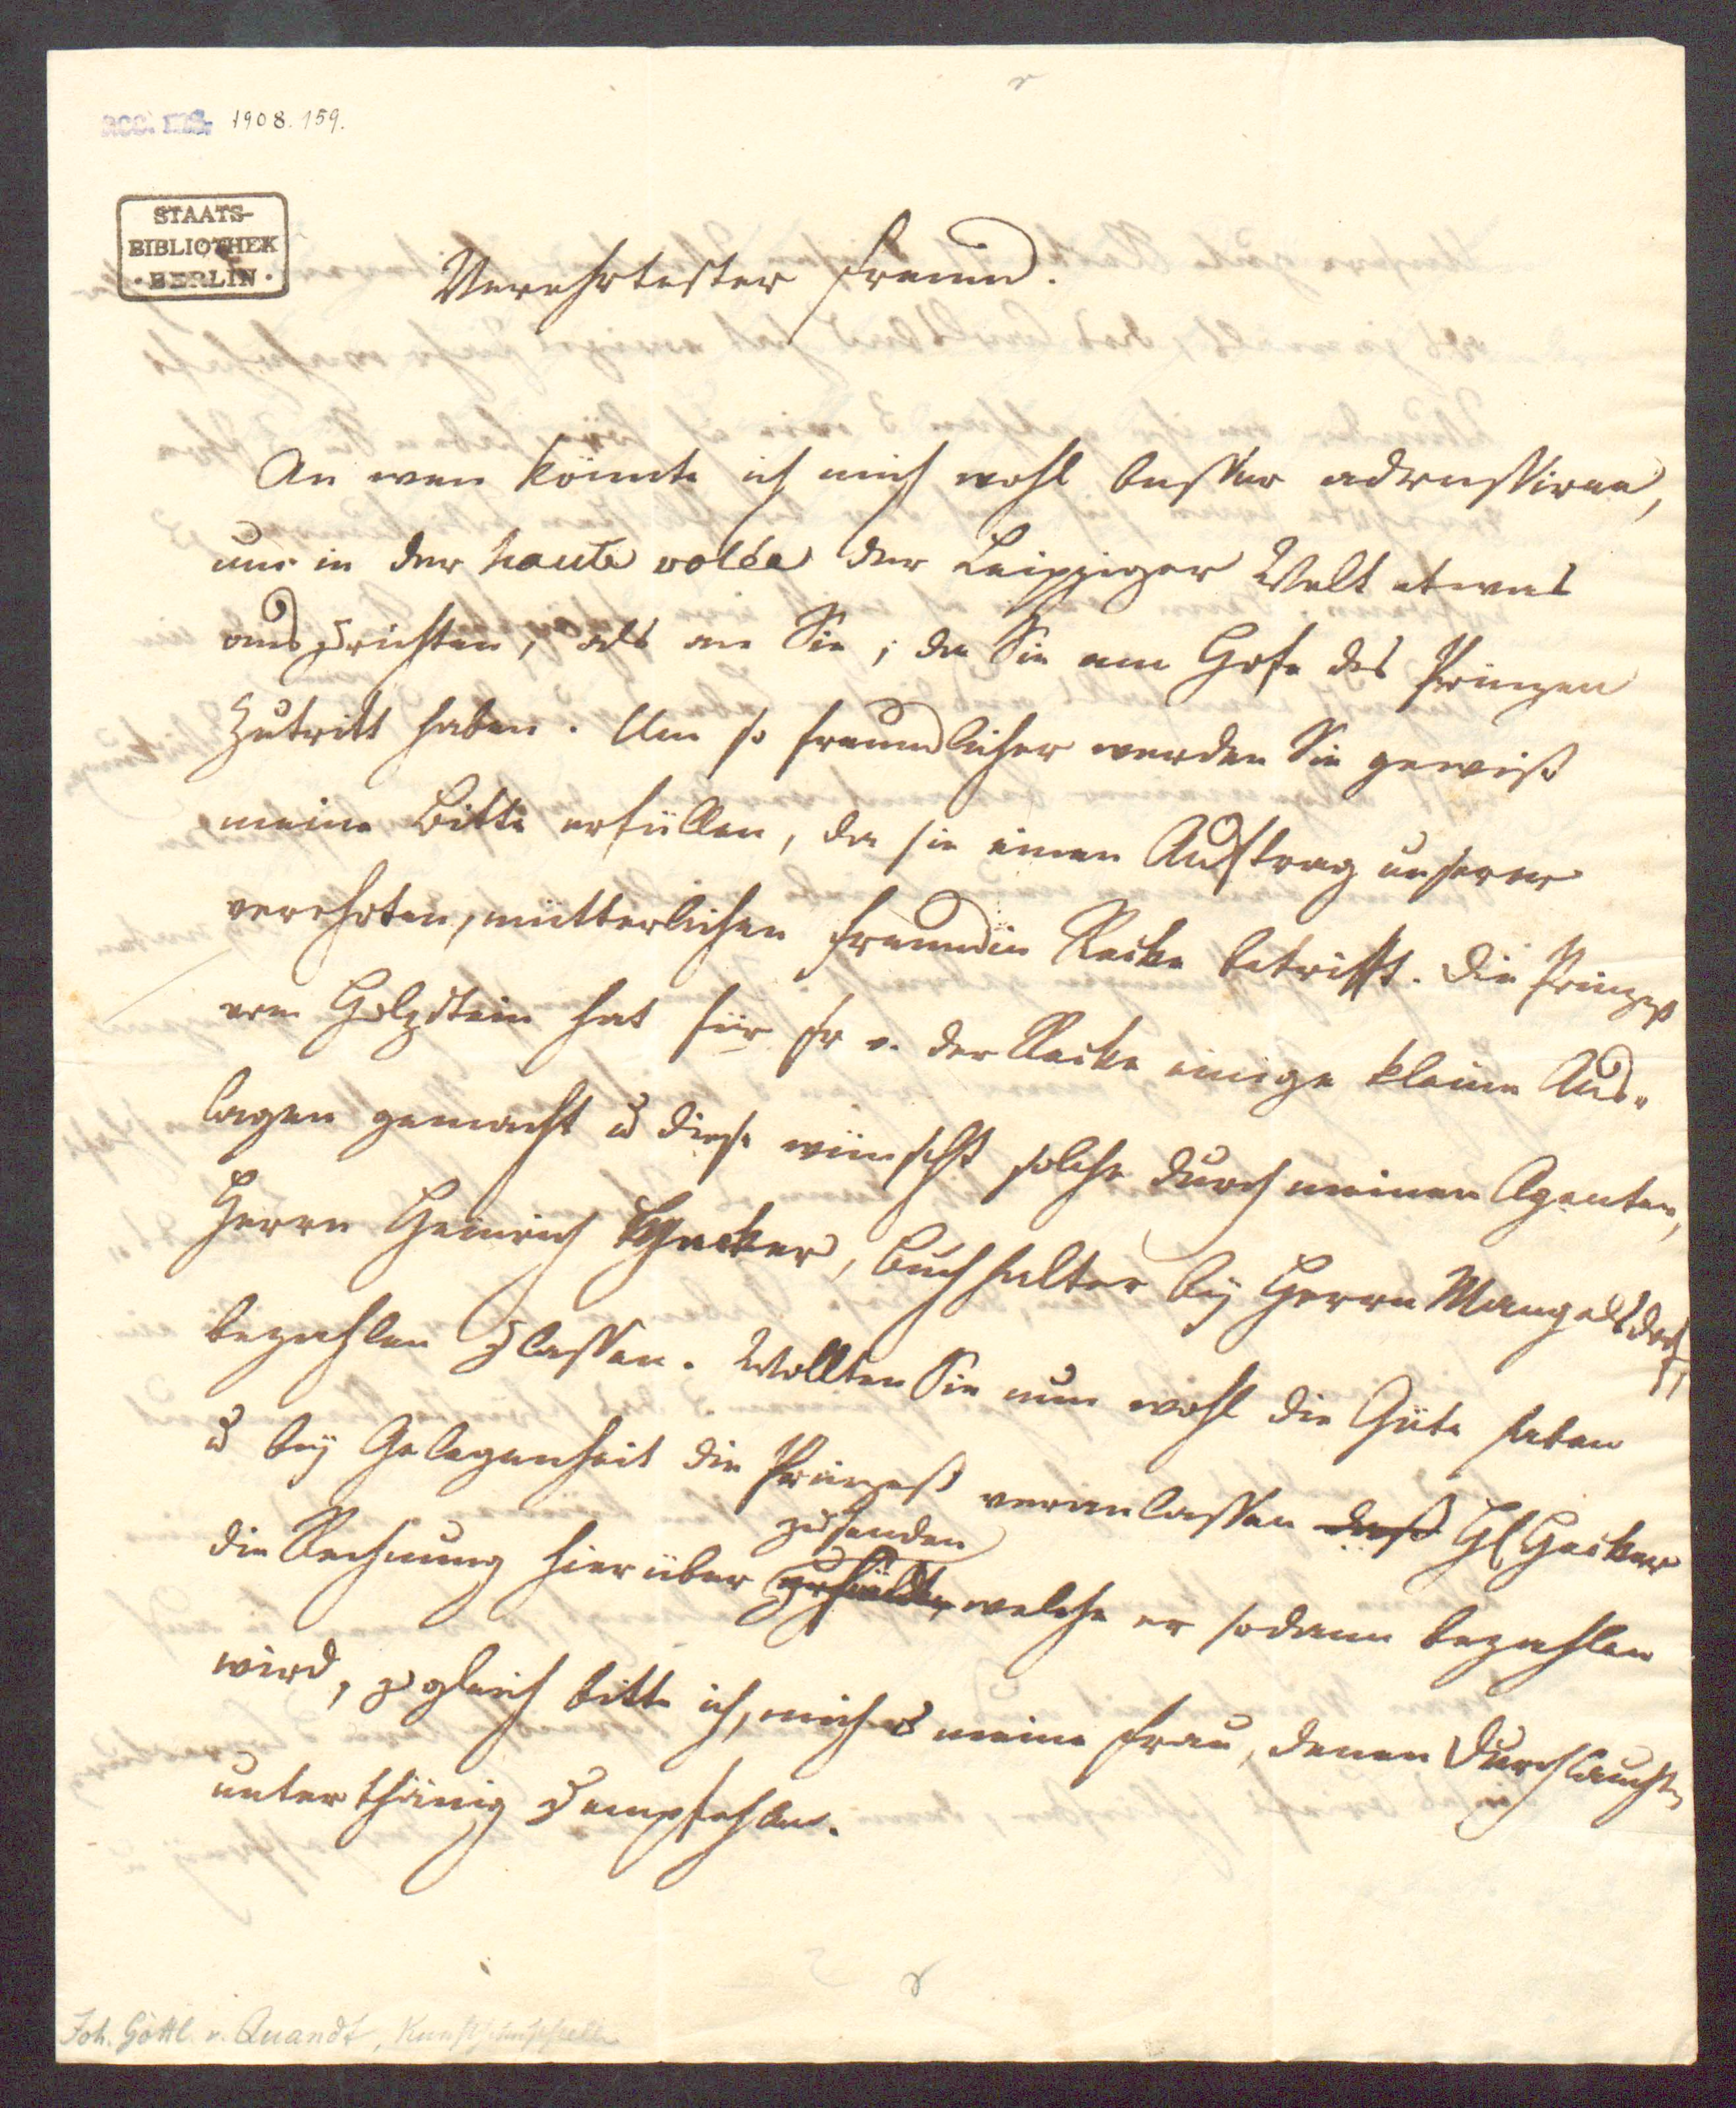 acc. ms. 1908.159.
STAATS-
BIBLIOTHEK
· BERLIN ·
Verehrtester Freund.
An wen könnte ich mich wohl besser adressiren,
um in der haute volée der Leipziger Welt etwas
auszurichten, als an Sie; da Sie am Hofe des Prinzen
Zutritt haben. Um so freundlicher werden Sie gewiß
meine Bitte erfüllen, da sie einen Auftrag unserer
verehrten, mütterlichen Freundin Recke betrifft. Die Prinzeß
von Holzstein hat für Fr v. der Recke einige kleine Aus-
lagen gemacht u diese wünscht solche durch meinen Agenten,
Herrn Heinrich Hacker, Buchhalter bey Herrn Mangelsdorff
bezahlen zu lassen. Wollten Sie nun wohl die Güte haben
u bey Gelegenheit die Prinzeß veranlassen daß H Hacker
zusenden
die Rechnung hierüber welche er sodann bezahlen
wird, zugleich bitte ich, mich u meine Frau, denen Durchlauchten
unterthänig zu empfehlen.
Joh. Gottl. v. Quandt, Kunstschriftsteller